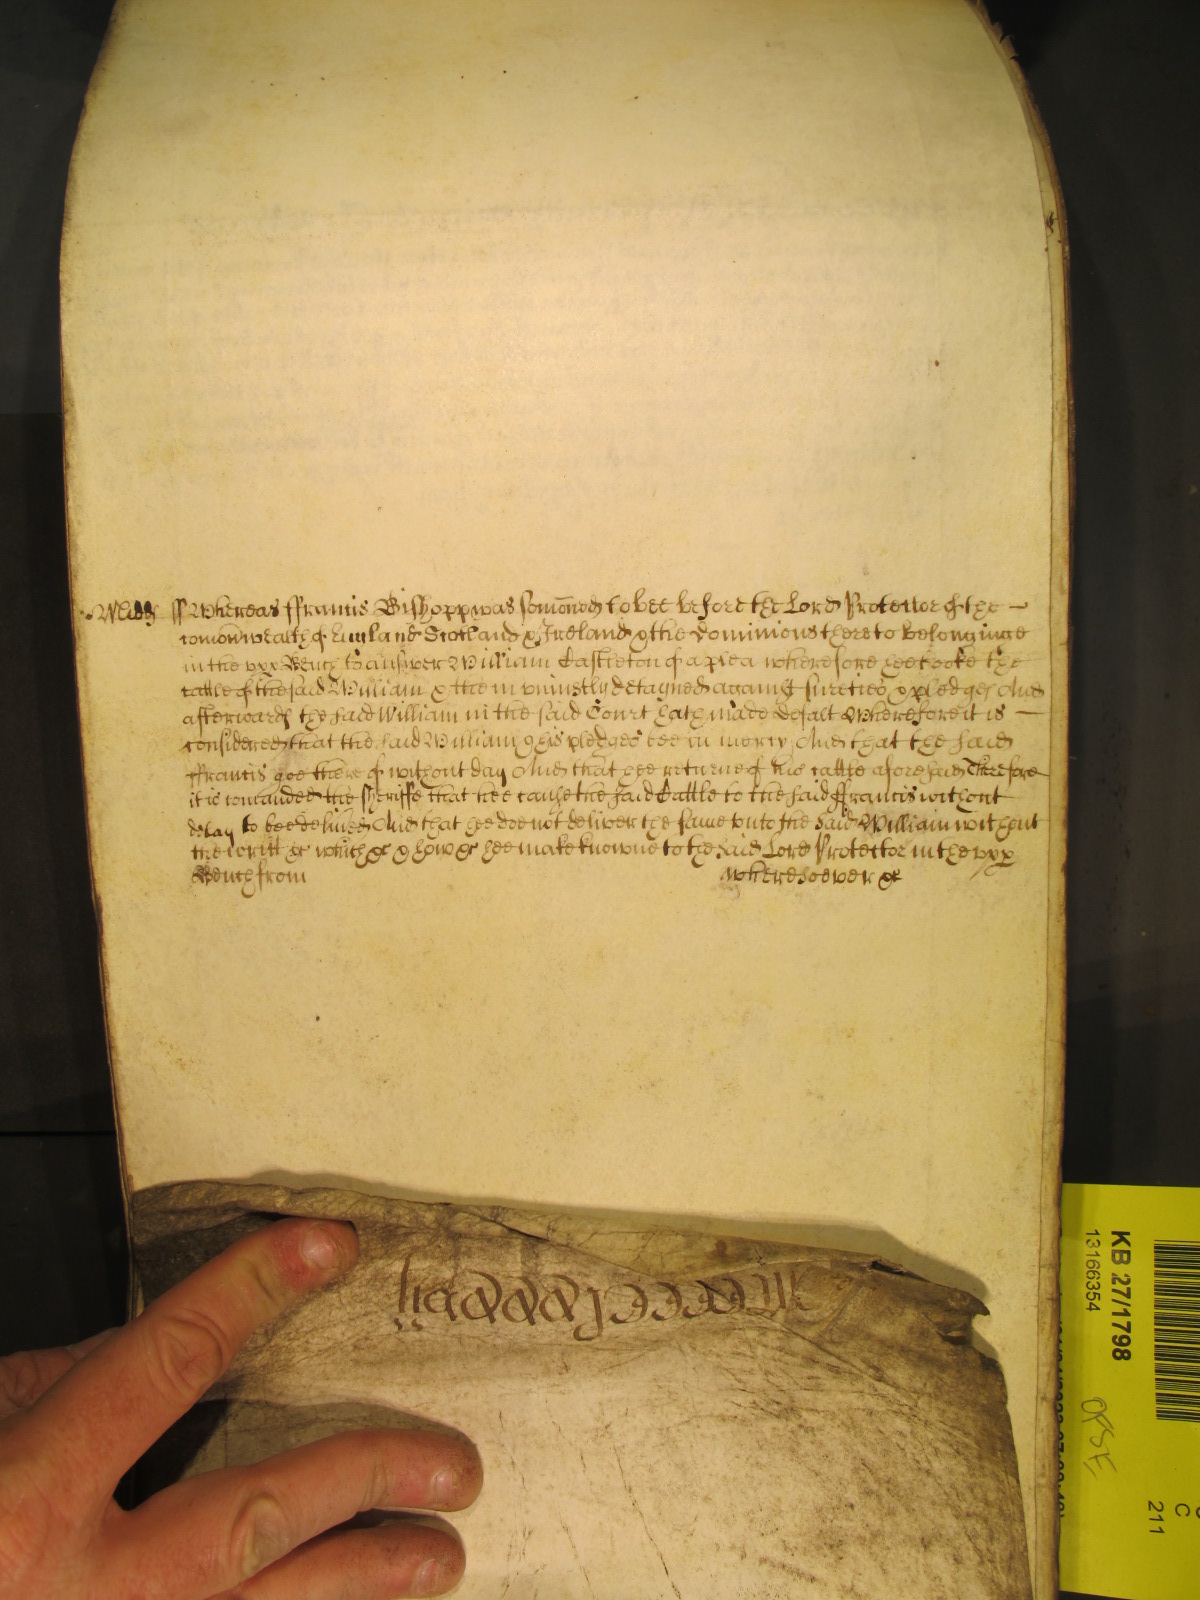 Midds ss Whereas ffrancis Bishopp was som̄oned to bee before the Lord Protector of the
com̄onwealth of England Scotland & Ireland & the dominions thereto belonginge
in the vpp Bench to answer William Castleton of a plea wherefore hee tooke the
cattle of the said William & them vniustly detayned against sureties & pledges And
afterwards the said William in the said Court hath made defalt Wherefore it is
considered that the said William & his pledges bee in mercy And that the said
ffrancis goe thereof without day And that hee returne of his cattle aforesaid Therefore
it is comanded the sheriffe that hee cause the said Cattle to the said ffrancis without
delay to bee deliued And that hee doe not deliver the same vnto the said William without
the writt &c which &c & how &c hee make knowne to the said Lord Protector in the vpp
Bench from wheresoever &c
KB 27/1798
13166354
C
211